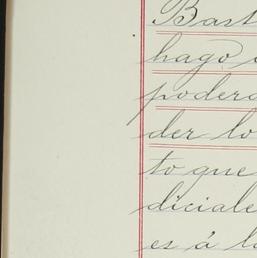 Bast
hago
podera
der lo
to que
diciale
es á l